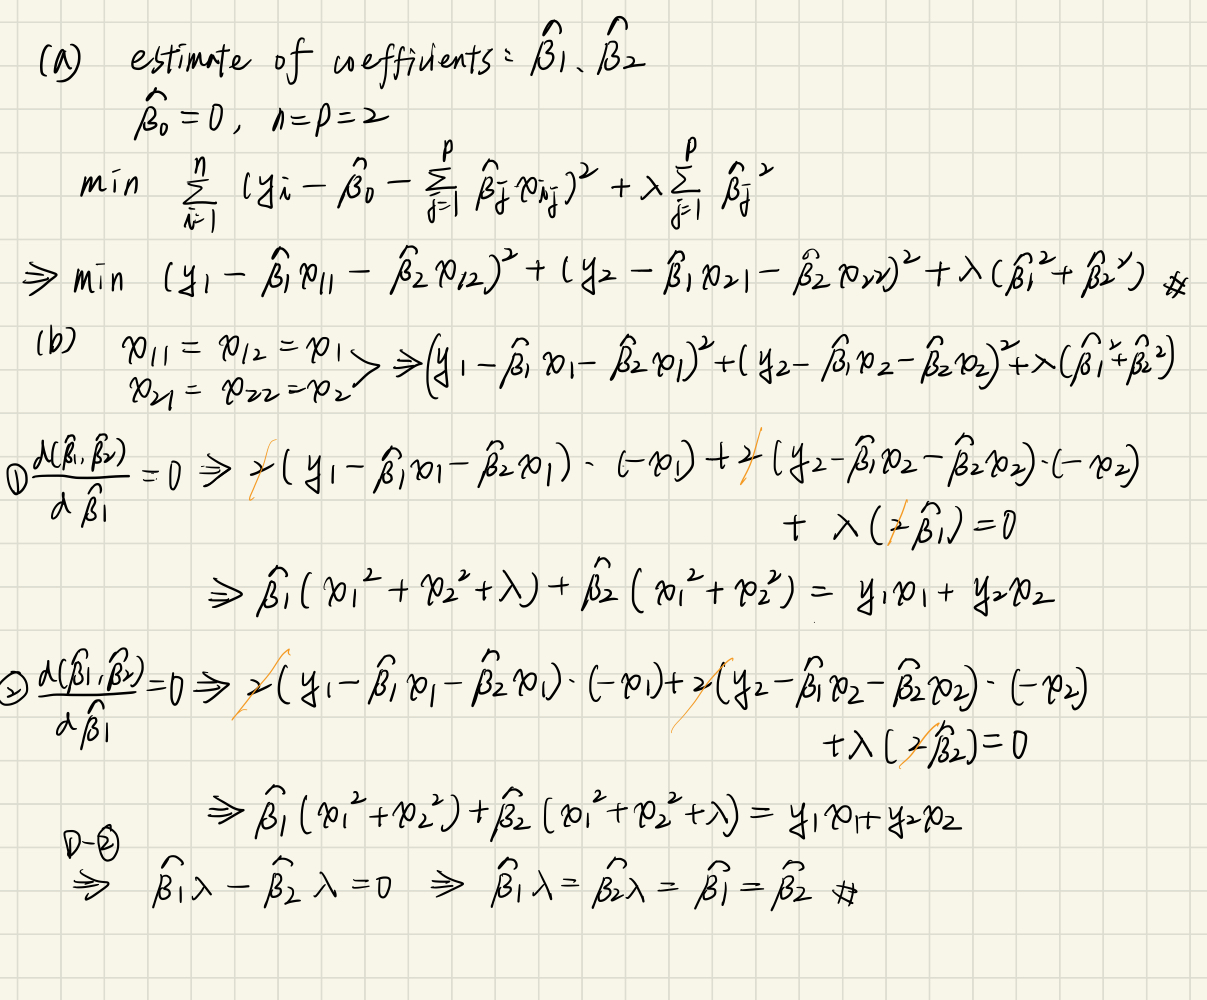 (a) estimate of coefficients: β̂₁、β̂₂
β̂₀ = 0, n = p = 2
min Σᵢ₌₁ⁿ (yᵢ − β̂₀ − Σⱼ₌₁ᵖ β̂ⱼ xᵢⱼ)² + λ Σⱼ₌₁ᵖ β̂ⱼ²
⇒ min (y₁ − β̂₁x₁₁ − β̂₂x₁₂)² + (y₂ − β̂₁x₂₁ − β̂₂x₂₂)² + λ(β̂₁² + β̂₂²) #
(b) x₁₁ = x₁₂ = x₁
x₂₁ = x₂₂ = x₂ > ⇒ (y₁ − β̂₁x₁ − β̂₂x₁)² + (y₂ − β̂₁x₂ − β̂₂x₂)² + λ(β̂₁² + β̂₂²)
① d(β̂₁, β̂₂)/dβ̂₁ = 0 ⇒ 2(y₁ − β̂₁x₁ − β̂₂x₁)·(−x₁) + 2(y₂ − β̂₁x₂ − β̂₂x₂)·(−x₂)
+ λ(2β̂₁) = 0
⇒ β̂₁(x₁² + x₂² + λ) + β̂₂(x₁² + x₂²) = y₁x₁ + y₂x₂
② d(β̂₁, β̂₂)/dβ̂₁ = 0 ⇒ 2(y₁ − β̂₁x₁ − β̂₂x₁)·(−x₁) + 2(y₂ − β̂₁x₂ − β̂₂x₂)·(−x₂)
+ λ(2β̂₂) = 0
⇒ β̂₁(x₁² + x₂²) + β̂₂(x₁² + x₂² + λ) = y₁x₁ + y₂x₂
①−②
⇒ β̂₁λ − β̂₂λ = 0 ⇒ β̂₁λ = β̂₂λ = β̂₁ = β̂₂ #